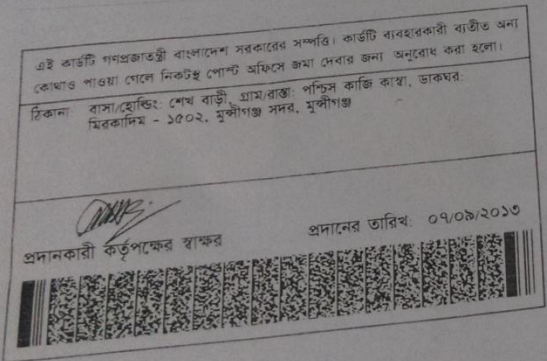 এই কার্ডটি গণপ্রজাতন্ত্রী বাংলাদেশ সরকারের সম্পত্তি। কার্ডটি ব্যবহারকারী ব্যতীত অন্য
কোথাও পাওয়া গেলে নিকটস্থ পোস্ট অফিসে জমা দেবার জন্য অনুরোধ করা হলো।
ঠিকানা: বাসা/হোল্ডিং: শেখ বাড়ী, গ্রাম/রাস্তা: পশ্চিম কাজি কাস্বা, ডাকঘর:
মিরকাদিম - ১৫০২, মুন্সীগঞ্জ সদর, মুন্সীগঞ্জ
প্রদানকারী কর্তৃপক্ষের স্বাক্ষর
প্রদানের তারিখ: ০৭/০৯/২০১৩